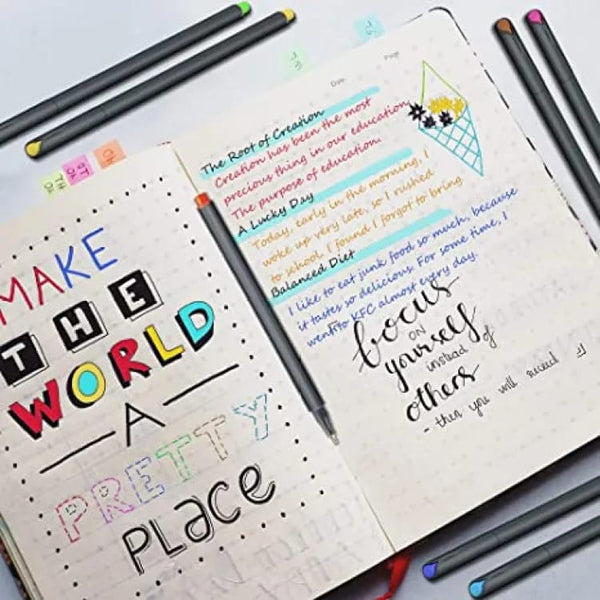 MAKE
THE
WORLD
A
PRETTY
PLACE
Date
Page
The Root of Creation
Creation has been the most
precious thing in our education,
The purpose of education.
A Lucky Day
Today, early in the morning, I
woke up very late, so I rushed
to school. I found I forgot to bring
Balanced Diet
I like to eat junk food so much, because
it tastes so delicious. For some time, I
went to KFC almost every day.
focus
ON
yourself
instead of
others
- then you will succeed